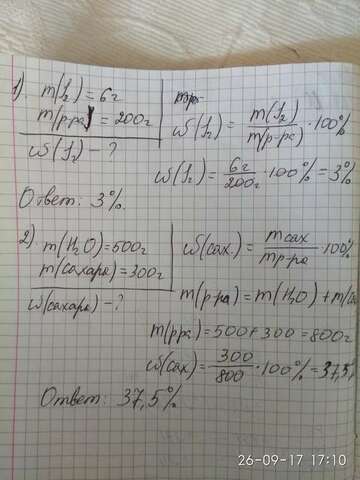 1). m(J₂) = 6г
m(р-ра) = 200г
ω(J₂) - ?
ω(J₂) = m(J₂) / m(р-ра) · 100%
ω(J₂) = 6г / 200г · 100% = 3%
Ответ: 3%.
2). m(H₂O) = 500г
m(сахара) = 300г
ω(сахара) - ?
ω(сах.) = m сах / m р-ра · 100%
m(р-ра) = m(H₂O) + m(са
m(рра) = 500 + 300 = 800г
ω(сах) = 300 / 800 · 100% = 37,5
Ответ: 37,5%
26-09-17 17:10